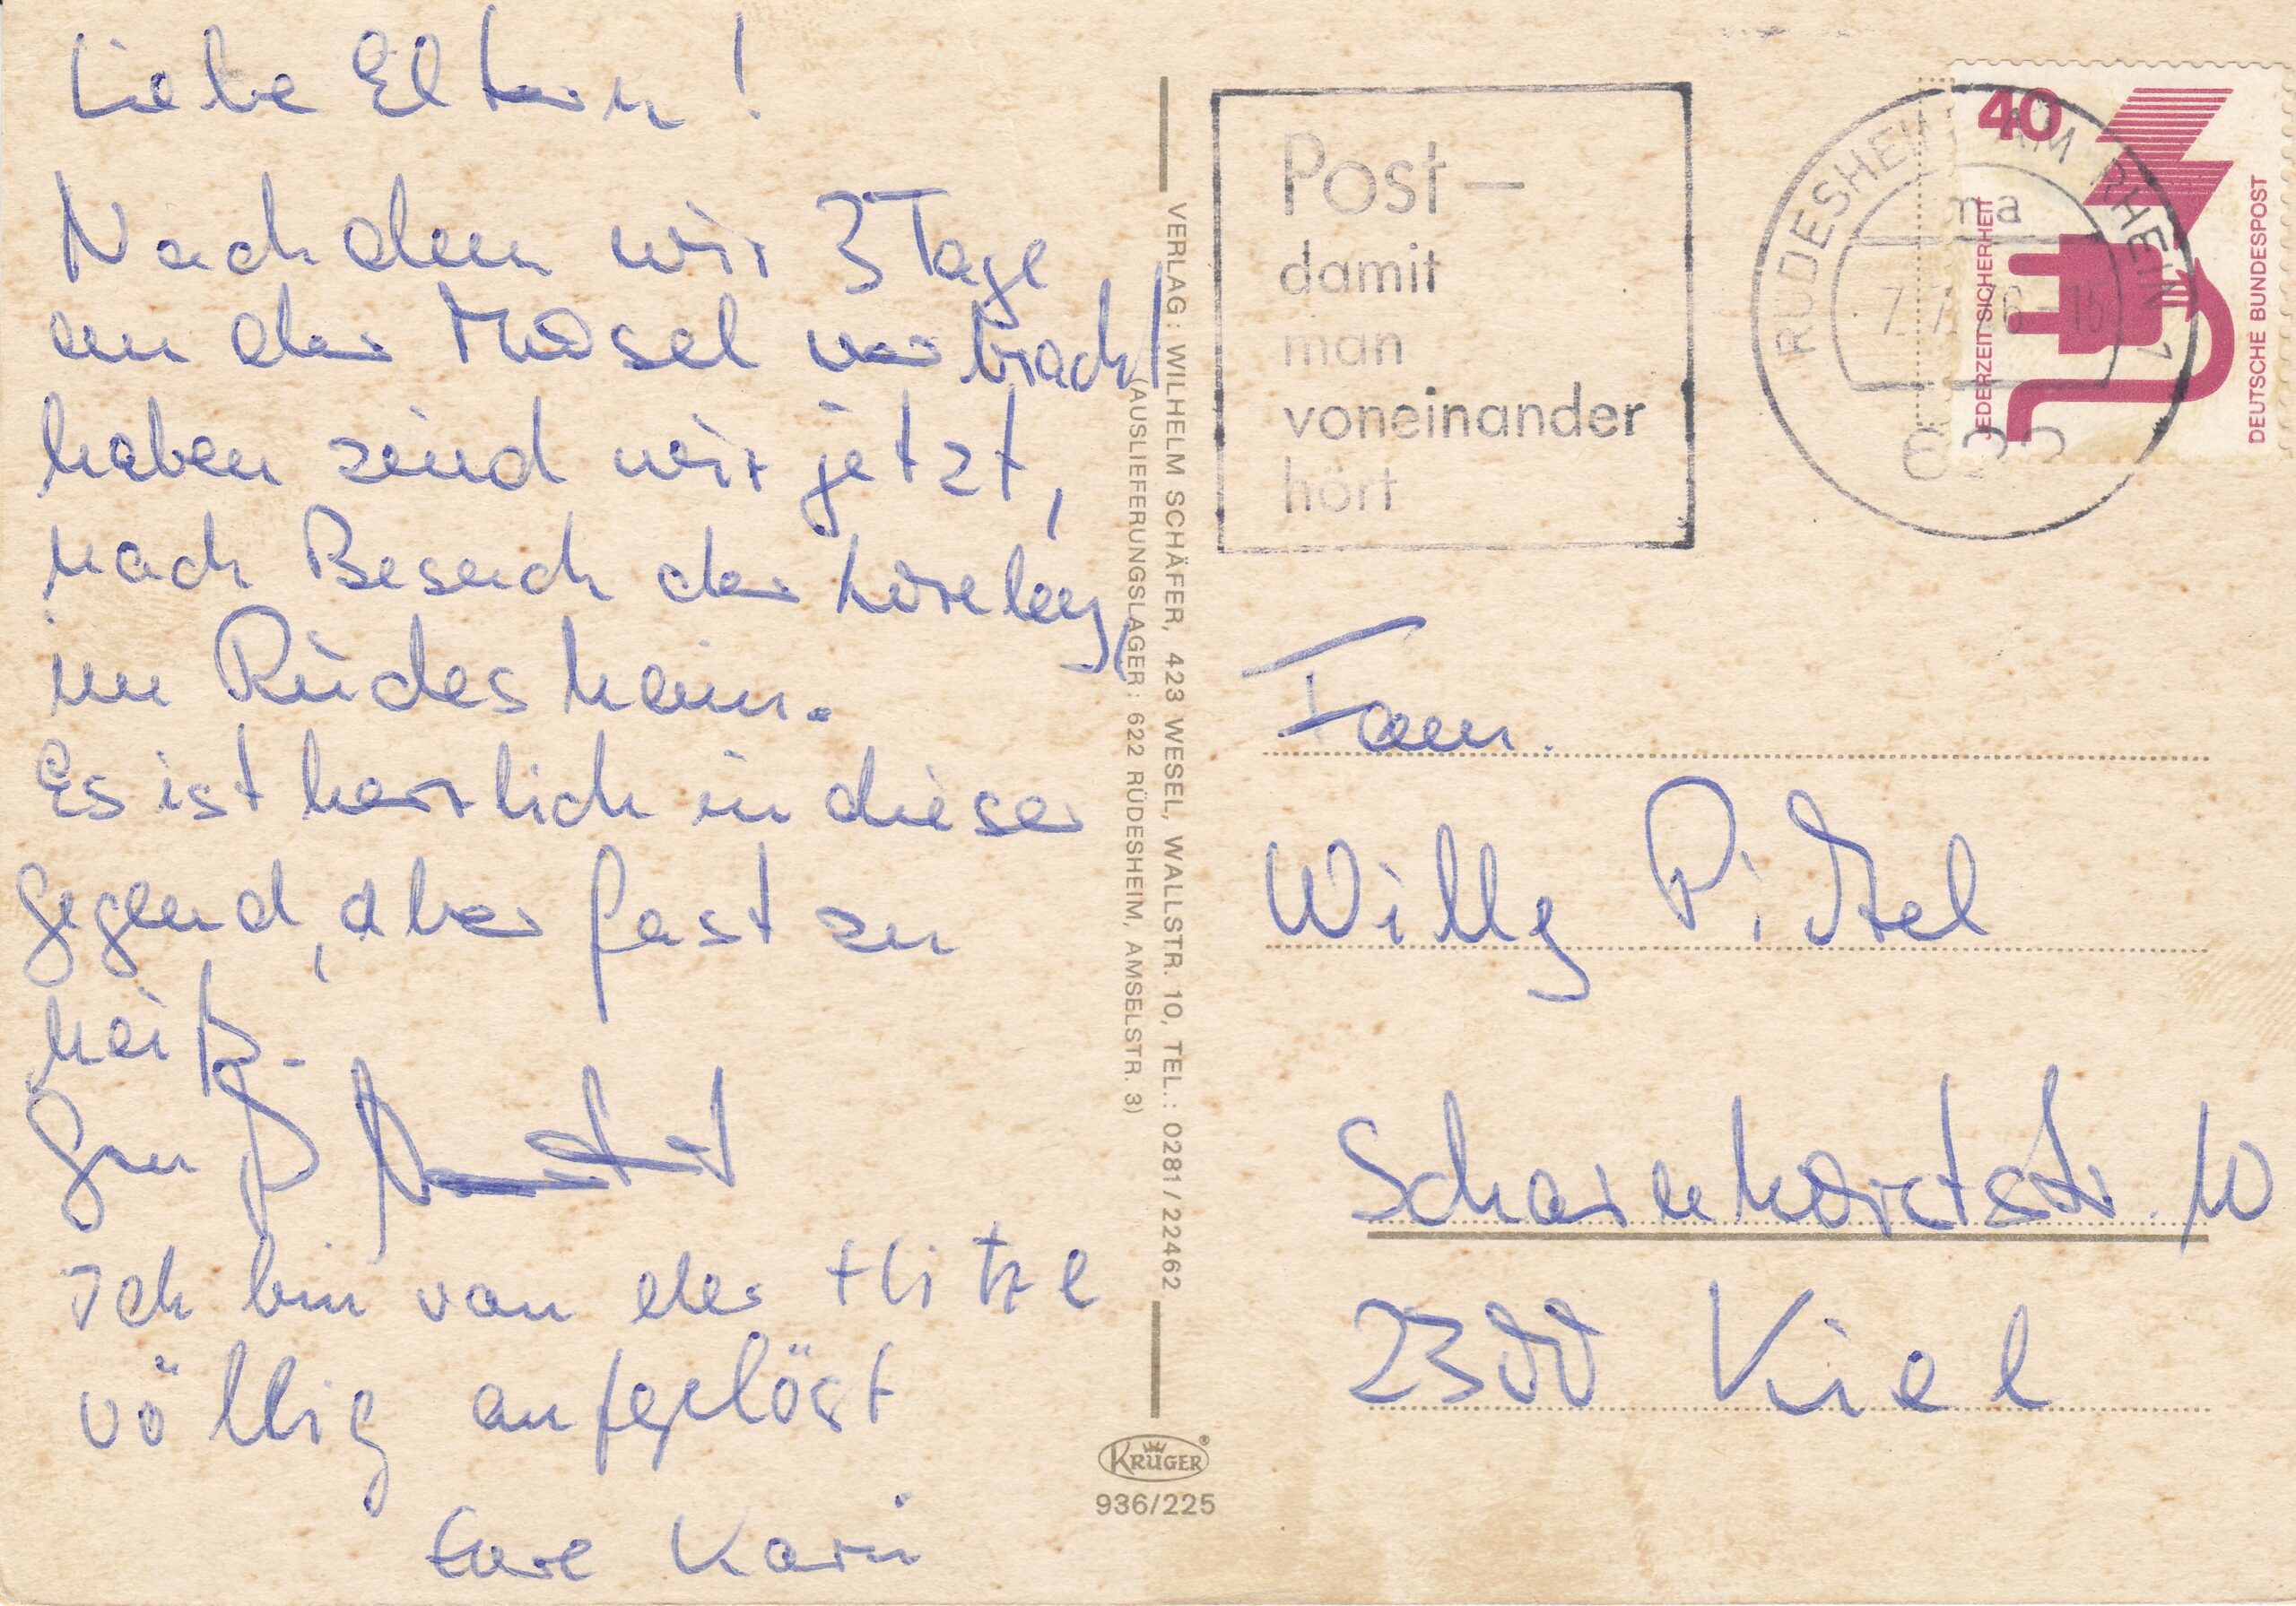 Liebe Eltern!
Nachdem wir 3 Tage
an der Mosel verbracht
haben sind wir jetzt,
nach Besuch der Loreley,
in Rüdesheim.
Es ist herrlich in dieser
Gegend, aber fast zu
heiß.
Gruß
Ich bin von der Hitze
völlig aufgelöst
Eure Karin
VERLAG: WILHELM SCHÄFER, 423 WESEL, WALLSTR. 10, TEL.: 0281/22462
(AUSLIEFERUNGSLAGER: 622 RÜDESHEIM, AMSELSTR. 3)
KRÜGER
936/225
Post –
damit
man
voneinander
hört
RÜDESHEIM AM RHEIN 1
ma
40
JEDERZEIT SICHERHEIT
DEUTSCHE BUNDESPOST
Fam.
Willy
Scharnhorststr. 10
2300 Kiel